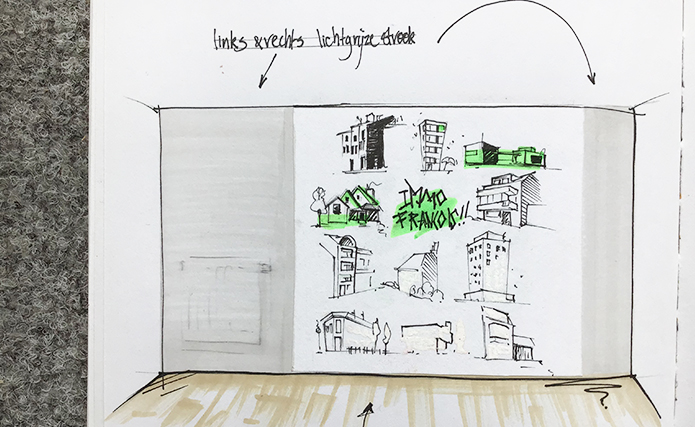 links & rechts lichtgrijze strook
IMMO
FRANOIS!!
?